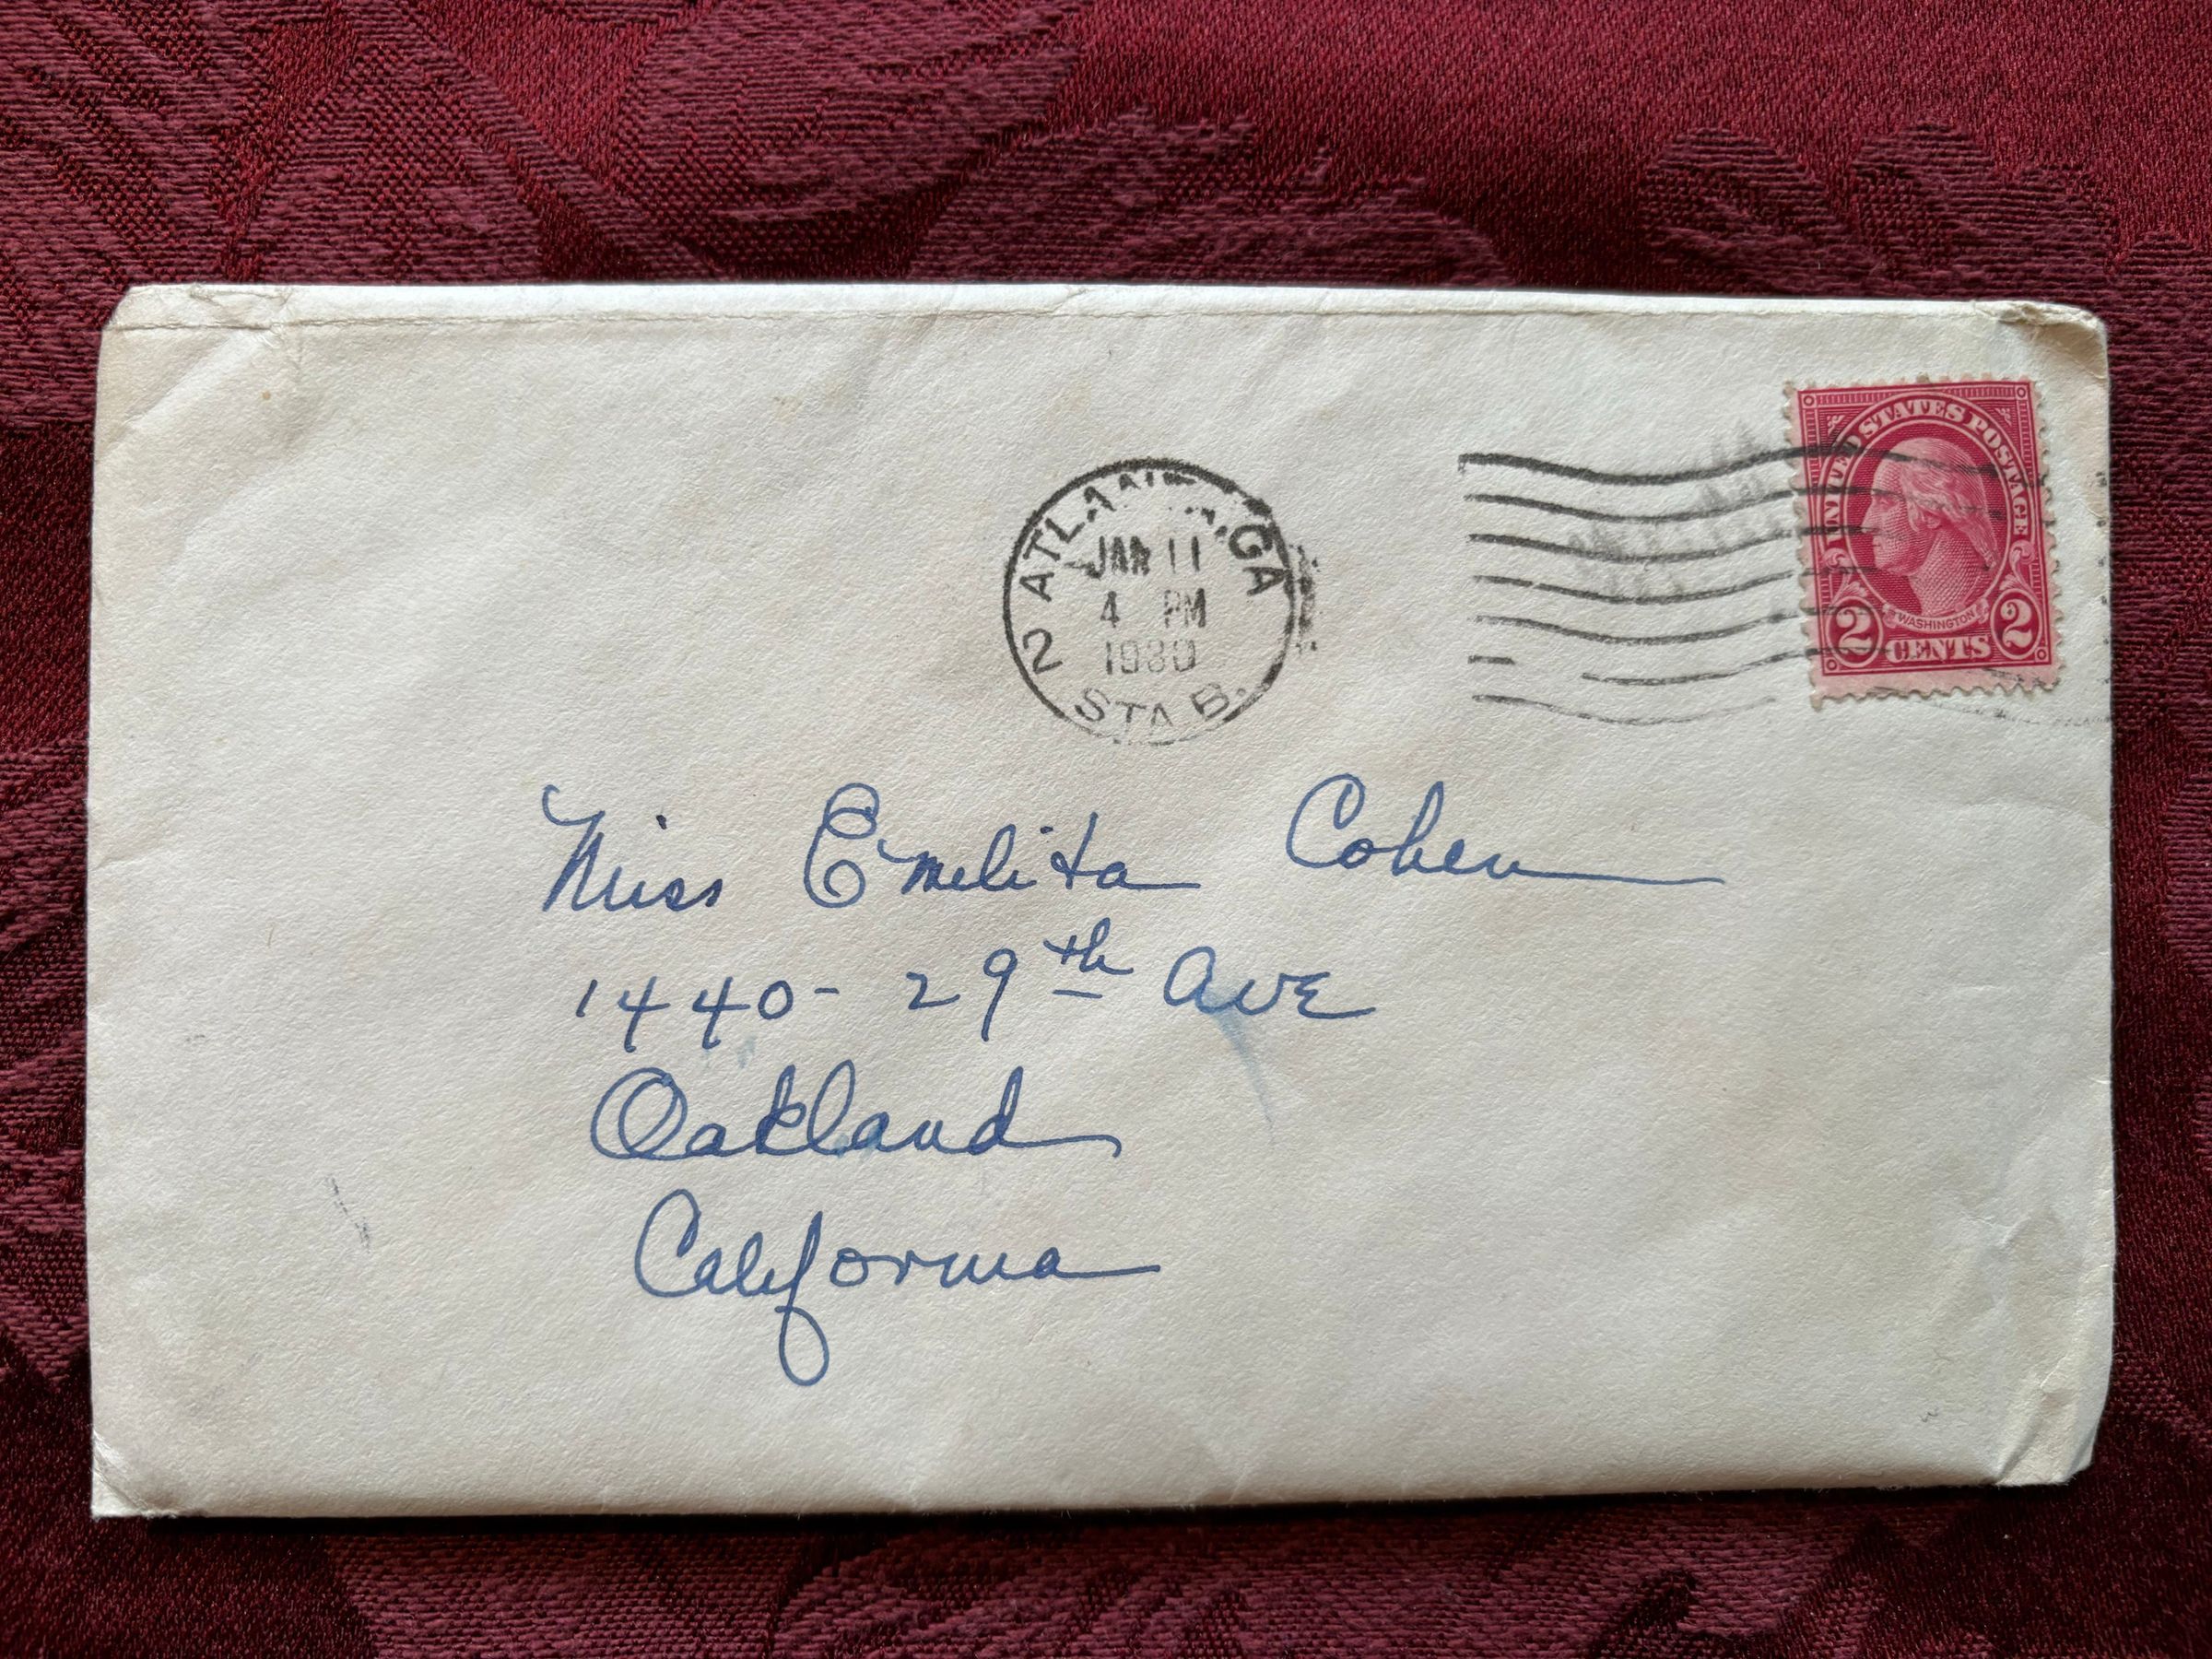 UNITED STATES POSTAGE
WASHINGTON
2 CENTS 2
ATLANTA, GA
JAN 11
4 PM
1930
2 STA B.
Miss Emelita Cohen
1440- 29th Ave
Oakland
California